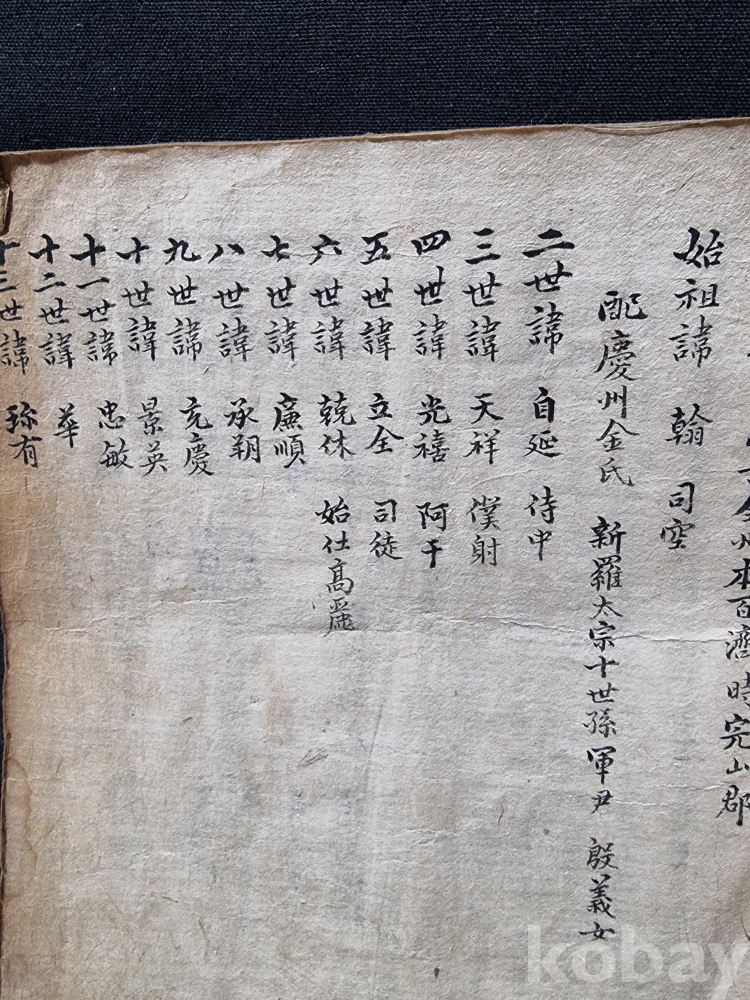 全州本百濟時完山郡
始祖諱 翰 司空
配慶州金氏 新羅太宗十世孫軍尹 殷義女
二世諱 自延 侍中
三世諱 天祥 僕射
四世諱 光禧 阿干
五世諱 立全 司徒
六世諱 兢休 始仕高麗
七世諱 廉順
八世諱 承朔
九世諱 充慶
十世諱 景英
十一世諱 忠敏
十二世諱 華
十三世諱 珎有
kobay